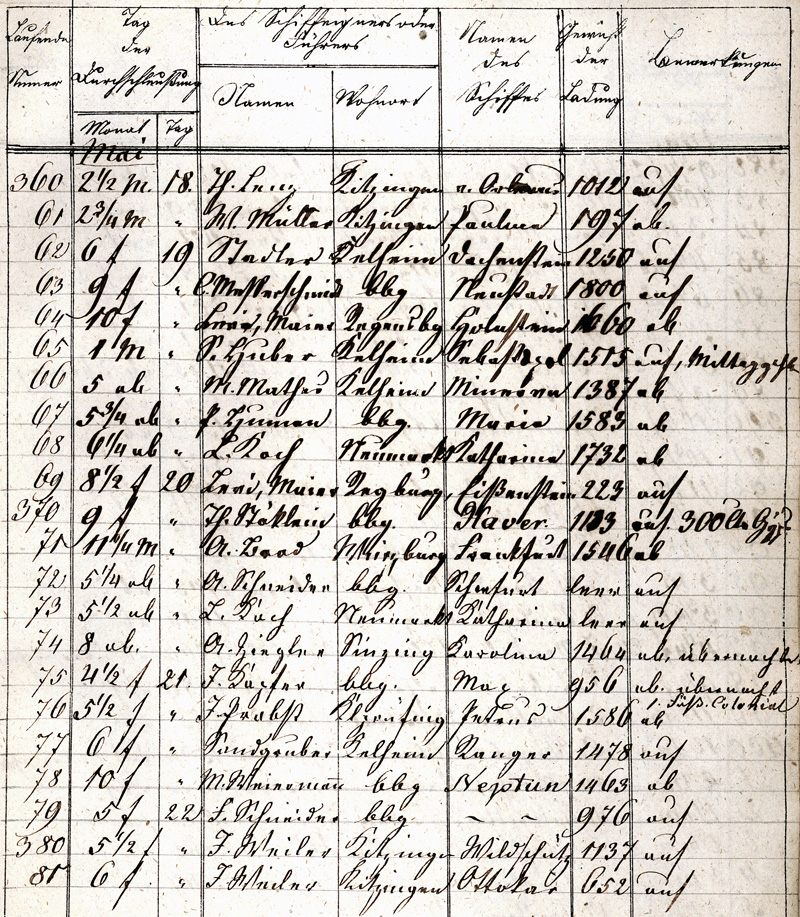 Laufende Tag Des Schiffeigners oder Namen Gewicht Bemerkungen
der Führers des der
Numer Durchschleußung Namen Wohnort Schiffes Ladung
Monat Tag
Mai
360 2½ M. 18. Th. Lenz Kitzingen v. 1012 auf
61 2¾ M " W. Müller Kitzingen Pauline 197 ab.
62 6 f 19 Stadler Kelheim Dachenstein 1250 auf
63 9 f " C. Messerschmid bbg Neustadt 1800 auf
64 10 f " Levi, Maier Regensbg Hohnstein 1660 ab
65 1 M " S. Huber Kelheim Sebastopol 1515 auf, Mittag
66 5 ab " M. Mather Kelheim Minerva 1387 ab
67 5¾ ab " P. bbg. Maria 1583 ab
68 6¼ ab " L. Koch Neumarkt Katharina 1732 ab
69 8½ f 20 Levi, Maier Regburg 223 auf
370 9 f " Th. Stöklein bbg. Xaver. 1133 auf. 300
71 11¼ M " A. Brod Würzburg Frankfurt 1546 ab
72 5¼ ab " A. Schneider bbg. Schwfurt leer auf
73 5½ ab " L. Koch Neumarkt Katharina leer auf
74 8 ab. " A. Ziegler Sinzing Karolina 1464 ab, übernachtet
75 4½ f 21 J. Kapfer bbg. Max 956 ab. übernacht
76 5½ f " J. Probst Petrus 1586 ab 1 Faß. Colonial
77 6 f " Sandgruber Kelheim Ranger 1478 auf
78 10 f " M. Weiermañ bbg Neptun 1463 ab
79 5 f 22 F. Schneider bbg. – – 976 auf
380 5½ f " J. Weiler Kitzinge Wildschütz 1137 auf
81 6 f " J. Weiler Kitzingen Ottokar 652 auf